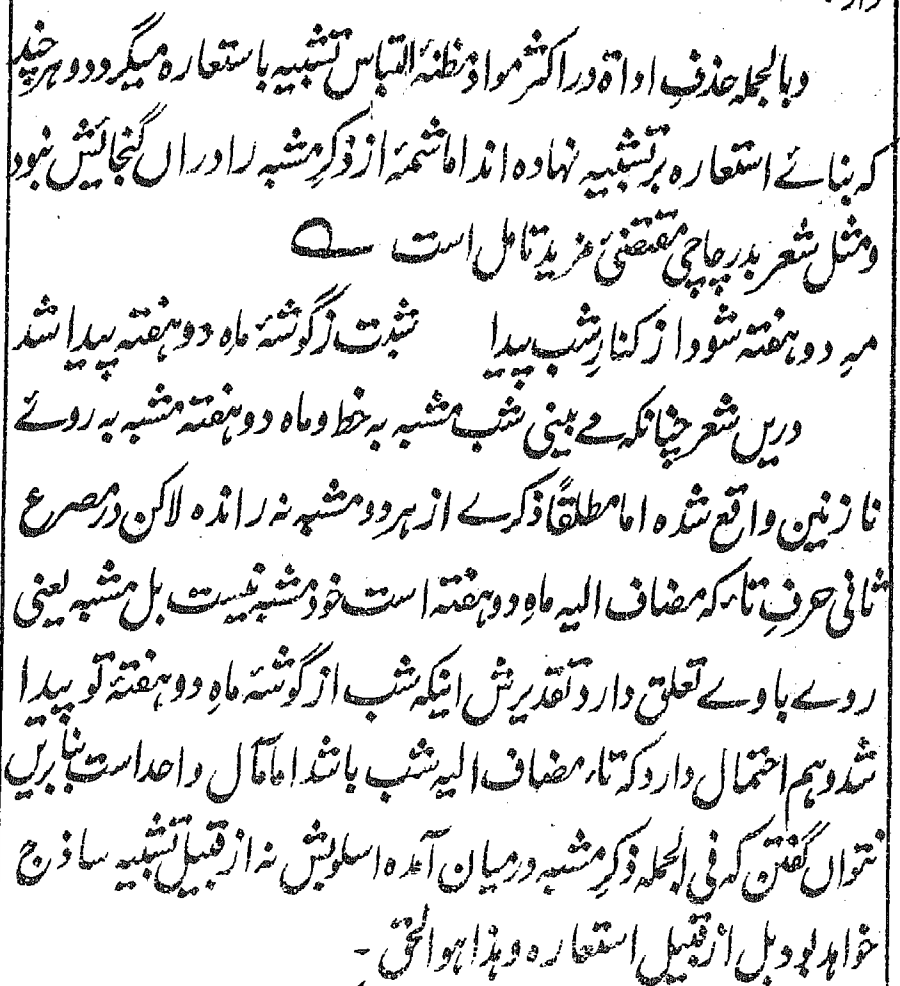 وبالجمله حذفِ اداة در اکثر مواد مظنۂ التباس تشبیه با ستعاره میگردد و هر چند
که بنائے استعاره بر تشبیه نهاده اند اما شمۂ از ذکرِ مشبه را دراں گنجائش نبود
و مثل شعر بدر چاچی مقتضیٔ مزید تامل است ؎
مهِ دو هفته شود از کنارِ شب پیدا شبت ز گوشۂ ماهِ دو هفته پیدا شد
دریں شعر چنانکه مے بینی شب مشبه به خط و ماه دو هفته مشبه به روئے
نازنین واقع شده اما مطلقًا ذکرے از هر دو مشبه نه رانده لاکن در مصرع
ثانی حرفِ تاء که مضاف الیه ماهِ دو هفته است خود مشبه نیست بل مشبه یعنی
روے با وے تعلق دارد تقدیرش اینکه شب از گوشۂ ماهِ دو هفتۂ تو پیدا
شد و هم احتمال دارد که تاء مضاف الیه شب باشد اما مآل واحد است بنا بریں
نتواں گفتن که فی الجمله ذکرِ مشبه درمیان آمده اسلوبش نه از قبیل تشبیه ساذج
خواهد بود بل از قبیل استعاره وهذا هو الحق ـ